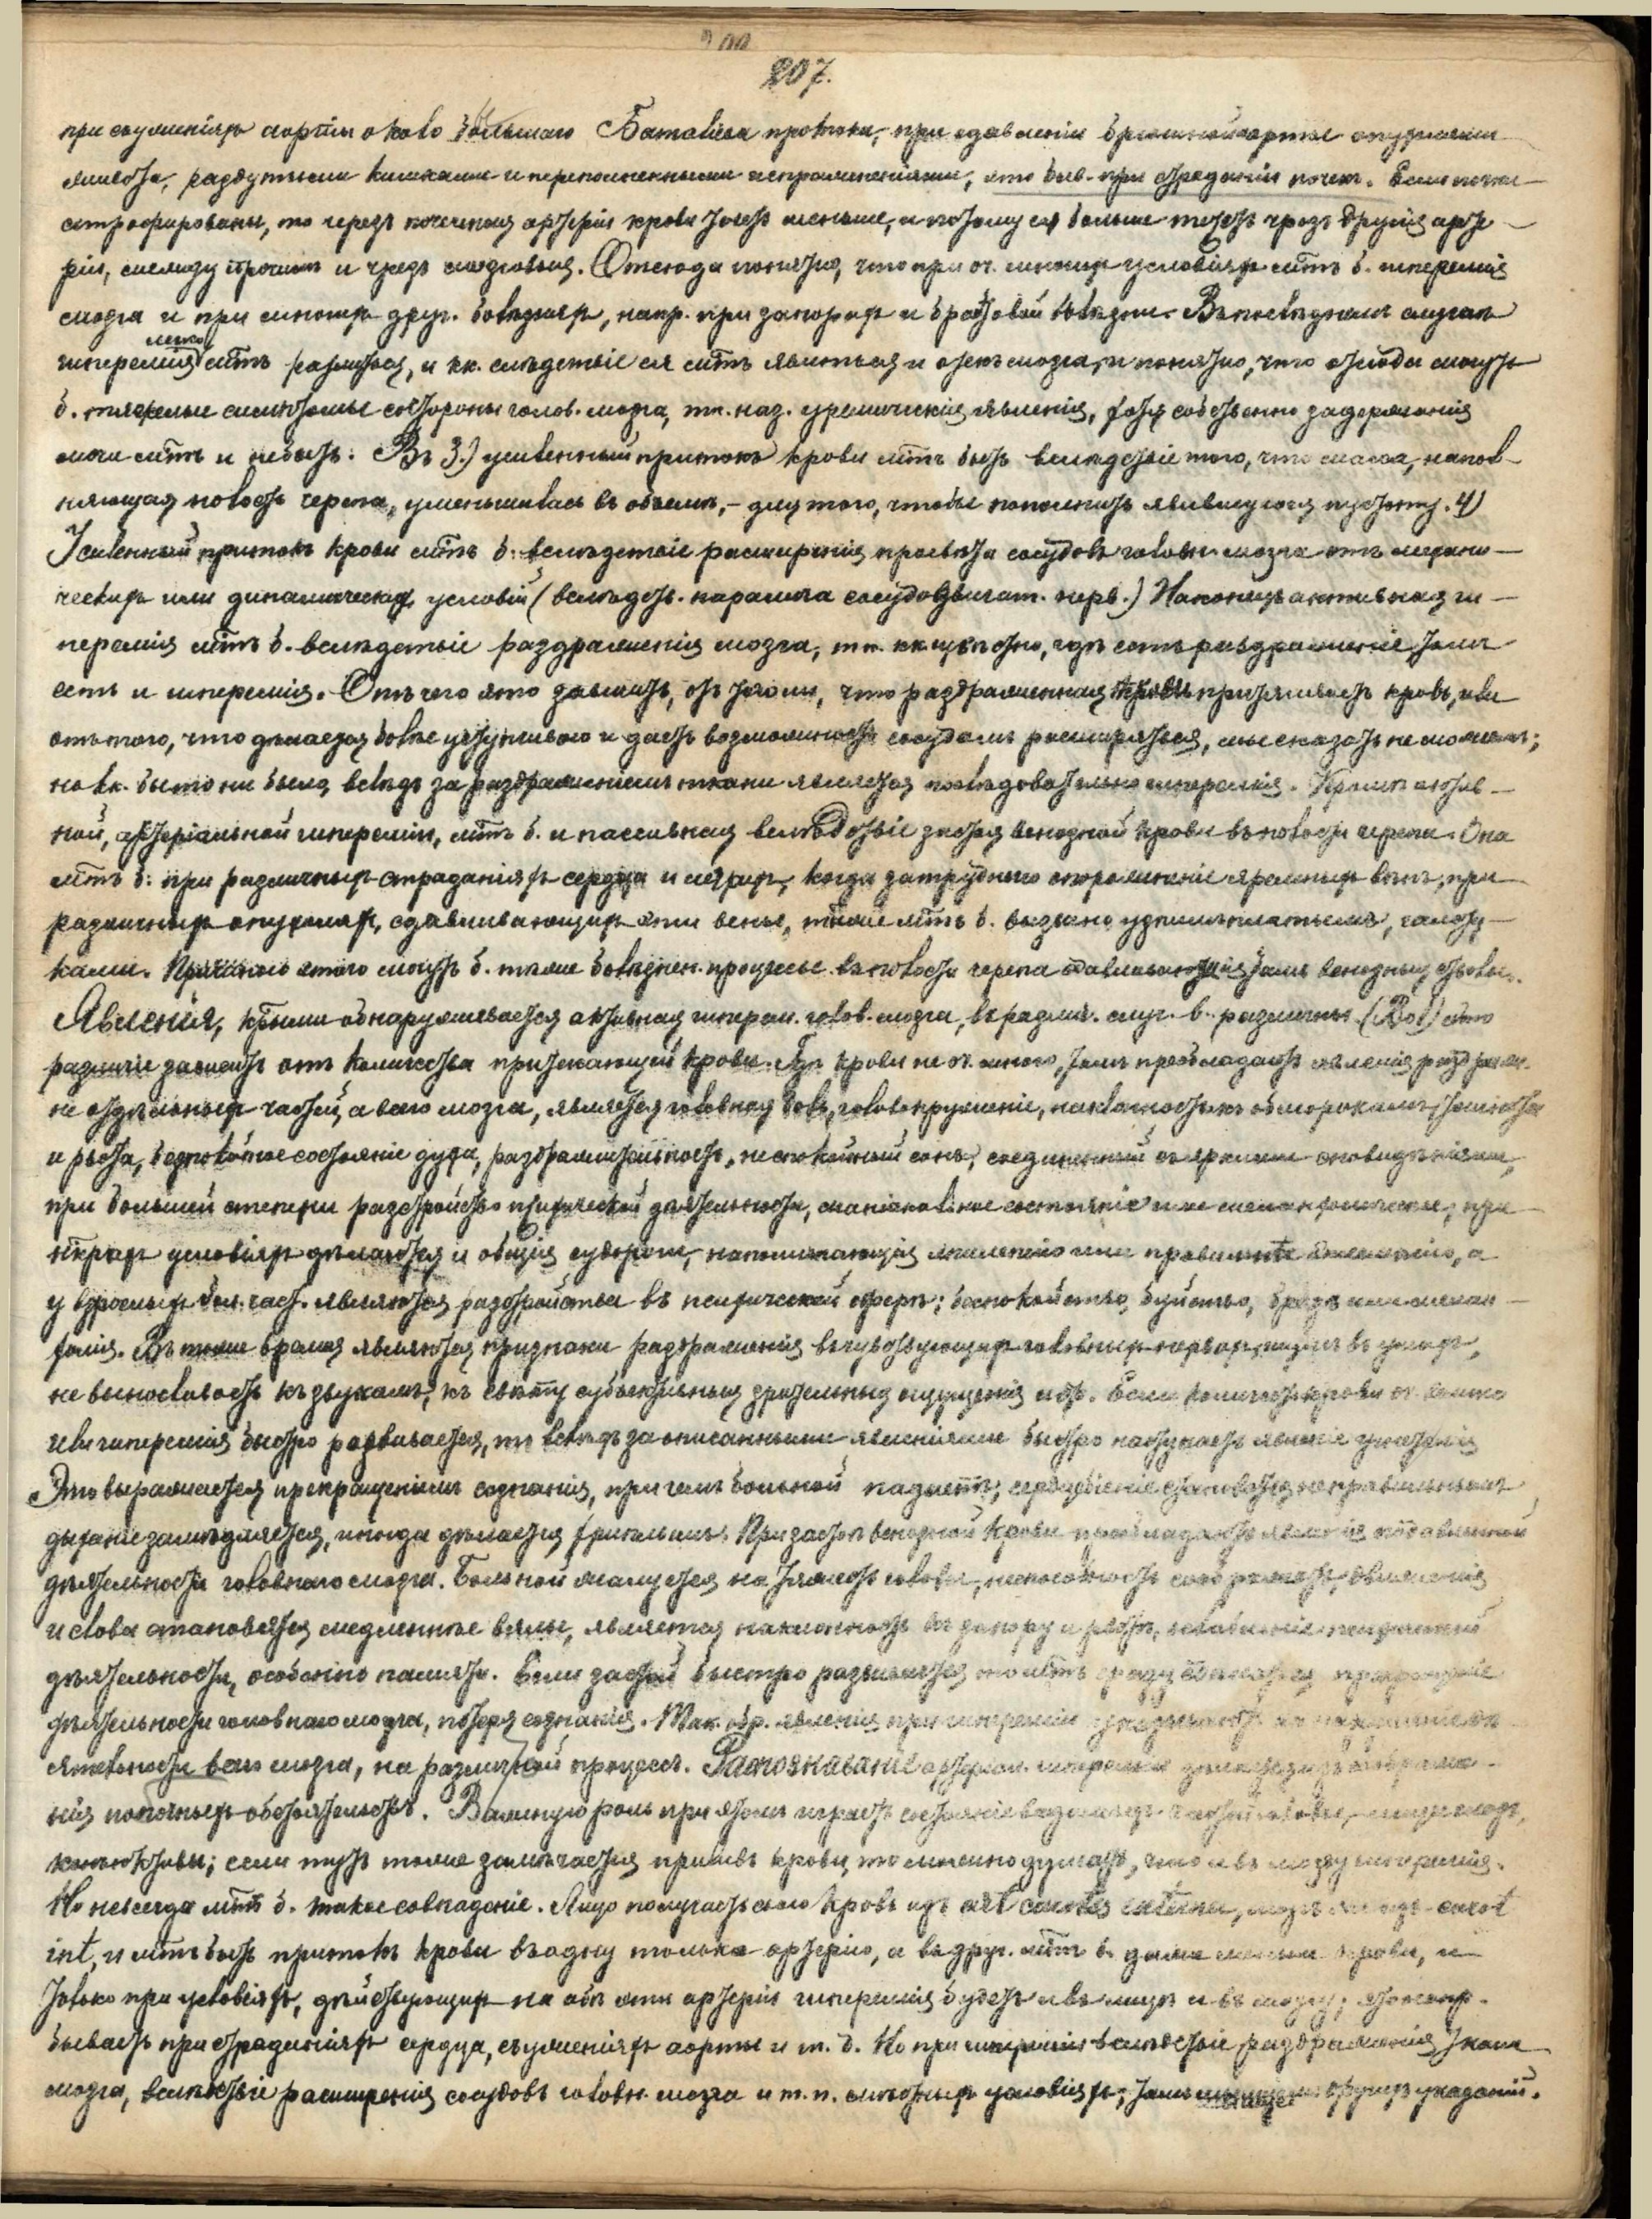 207.
при съуженіяхъ аорты около большаго Боталіева протока, при сдавленіи брюшной аорты опухолями
живота, раздутыми кишками и переполненными испражненіями, это быв. при страданіи почекъ. Если почки
атрофированы, то черезъ почечныя артеріи крови течетъ меньше, и потому ея больше течетъ чрезъ другія арте
ріи, между прочимъ и чрезъ мозговыя. Отсюда понятно, что при оч. многихъ условіяхъ мт̃ъ б. гиперемія
мозга и при многихъ друг. болѣзняхъ, напр. при запорахъ и Брайтовой болѣзни. Въ послѣднемъ случаѣ
гиперемія легко мт̃ъ развиться, и кк. слѣдствіе ея мт̃ъ явиться и отекъ мозга, и понятно, что отсюда могутъ
б. тяжелые симптомы со стороны голов. мозга, тк. наз. уремическія явленія, хотя собственно задержанія
мочи мт̃ъ и не быть. Въ 3.) усиленный притокъ крови мт̃ъ быть вслѣдствіе того, что масса, напол-
няющая полость черепа, уменьшилась въ объемѣ, - для того, чтобы пополнить явившуюся пустоту. 4)
Усиленный притокъ крови мт̃ъ б. вслѣдствіе расширенія просвѣта сосудовъ головн. мозга отъ механи-
ческихъ или динамическихъ условій (вслѣдств. паралича сосудодвигат. нерв.) Наконецъ активная ги-
перемія мт̃ъ б. вслѣдствіе раздраженія мозга, тк. кк. извѣстно, гдѣ есть раздраженіе тамъ
есть и гиперемія. Отъ чего это зависитъ, отъ того ли, что раздраженная притягиваетъ кровь, или
отъ того, что дѣлается болѣе уступчивою и даетъ возможность сосудамъ расшириться, мы сказать не можемъ;
но кк. бы то ни было, вслѣдъ за раздраженіемъ ткани является послѣдовательно гиперемія. Кромѣ актив-
ной, артеріальной гипереміи, мт̃ъ б. и пассивная вслѣдствіе застоя венозной крови въ полости черепа. Она
мт̃ъ б. при различныхъ страданіяхъ сердца и легкихъ, когда затруднено опорожненіе яремныхъ венъ, при
различныхъ опухоляхъ, сдавливающихъ эти вены, также мт̃ъ б. вызвано узкимъ платьемъ, галсту-
ками. Причиною этого могутъ б. также болѣзнен. процессы въ полости черепа сдавливающіе тамъ венозные стволы.
Явленія, которыми обнаруживается активная гиперем. голов. мозга, въ различ. случ. б. различны. это
различіе зависитъ отъ количества притекающей крови. Гдѣ крови не оч. много, тамъ преобладаютъ явленія раздражен.
не отдѣльныхъ частей, а всего мозга, является головная боль, головокруженіе, наклонность къ обморокамъ, тошнота
и рвота, безпокойное состояніе духа, раздражительность, неспокойный сонъ, соединенный съ яркими сновидѣніями,
при большей степени разстройство психической дѣятельности, маніакальное состояніе или меланхолическое; при
нѣкрыхъ условіяхъ дѣлаются и общія судороги, напоминающія эпилепсію или эклампсію, а
у взрослыхъ бол. част. являются разстройства въ психической сферѣ: безпокойство, буйство, бредъ или мелан-
холія. Въ тоже время являются признаки раздраженія въ чувствующихъ головныхъ нервахъ, шумъ въ ушахъ,
не выносливость къ звукамъ, къ свѣту субъективныя зрительныя ощущенія и др. Если количество крови оч. велико
или гиперемія быстро развивается, то вслѣдъ за описанными явленіями быстро наступаетъ явленіе угнетенія
Это выражается прекращеніемъ сознанія, при чемъ больной падаетъ, сердцебіеніе становится неправильнымъ
дыханіе замедляется, иногда дѣлается хриплымъ. При застоѣ венозной крови преобладаютъ явленія подавленной
дѣятельности головнаго мозга. Больной жалуется на тяжесть головы, неспособность соображать, движенія
и слова становятся медленнѣе вялы, является наклонность къ запору и рвотѣ, ослабленіе психической
дѣятельности, особенно памяти. Если застой быстро развивается то мт̃ъ сразу сдѣлаться прекращеніе
дѣятельности головнаго мозга, потеря сознанія. Так. обр. явленія при гипереміи указываютъ на
дѣятельности всего мозга, на различный процессъ. Распознаваніе артеріал. гипереміи
нія побочныхъ обстоятельствъ. Важную роль при этомъ играетъ состояніе видимыхъ частей головы, лица,
конъюктивы; если тутъ также замѣчается приливъ крови, то можно думать, что и въ мозгу гиперемія.
Но не всегда мт̃ъ б. такое совпаденіе. Лицо получаетъ свою кровь изъ art carotis externa, мозгъ же изъ carot
int, и мт̃ъ быть притокъ крови въ одну только артерію, а въ друг. мт̃ъ б. даже меньше крови, и
только при условіяхъ, дѣйствующихъ на обѣ эти артеріи гиперемія будетъ и въ лицѣ и въ мозгу; это напр.
бываетъ при страданіяхъ сердца, съуженіяхъ аорты и т. д. Но при гипереміи вслѣдствіе раздраженія ткани
мозга, вслѣдствіе расширенія сосудовъ головн. мозга и т. п. мѣстныхъ условіяхъ, тамъ другихъ указаній.